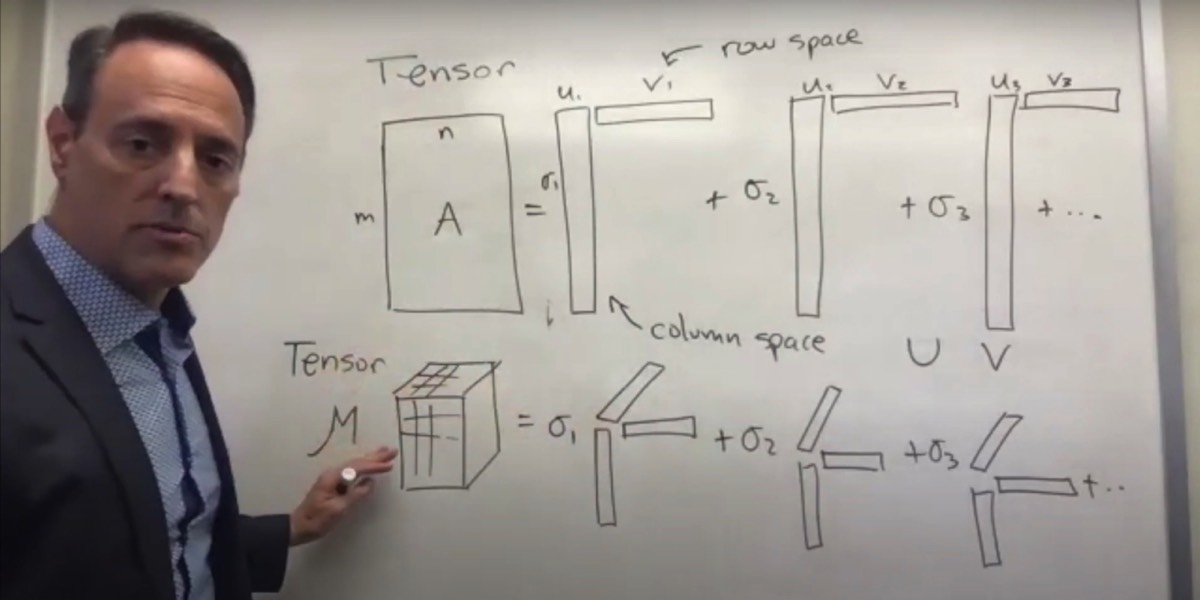 row space
Tensor
u₁ v₁ u₂ v₂ u₃ v₃
n
m A = σ₁ + σ₂ + σ₃ + ...
column space
U V
Tensor
M = σ₁ + σ₂ + σ₃ + ..